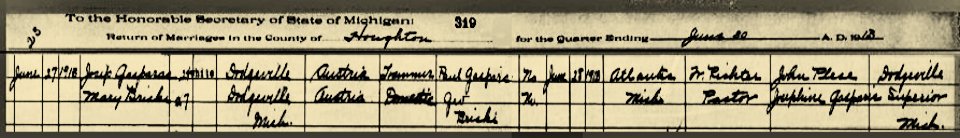 To the Honorable Secretary of State of Michigan: 319
Return of Marriages in the County of Houghton for the Quarter Ending June 30 A. D. 1913
June 27 1913 Josip Gasparac W Dodgeville Austria Trammer Paul Gasparic No June 28 1913 Atlantic W. Richter John Plese Dodgeville
Mary Briski 27 Dodgeville Austria Domestic Geo No Mich Pastor Josephine Gasparac Superior
Mich. Briski Mich.